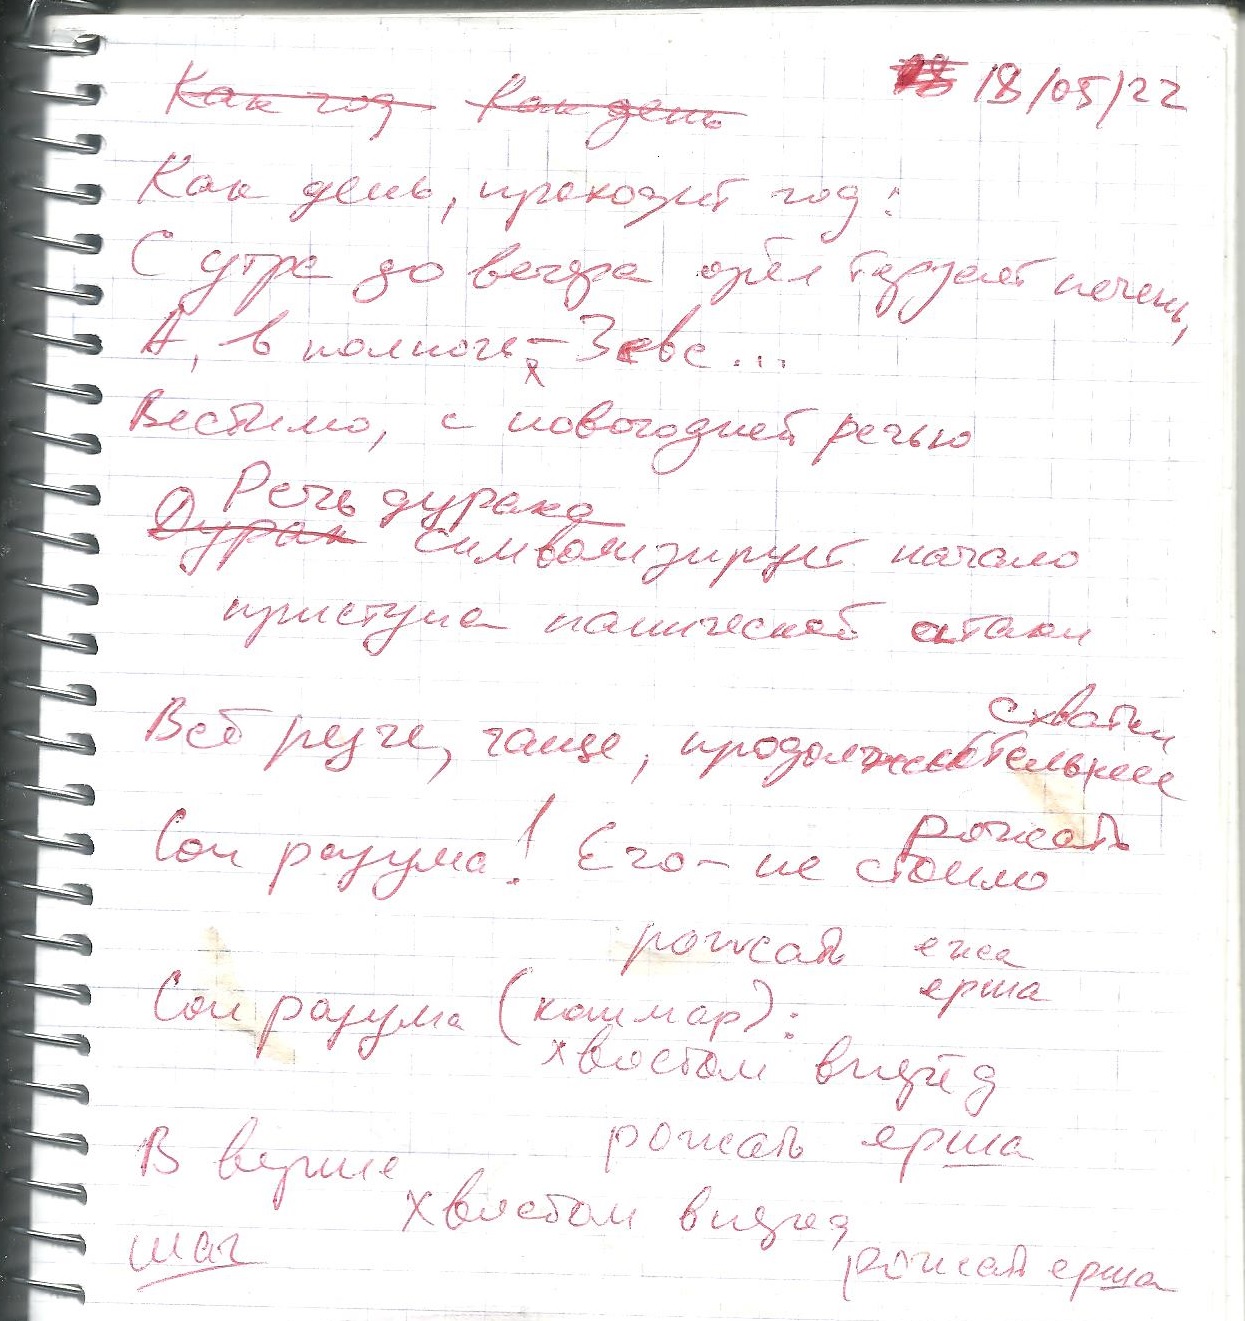 18/05/22
Как год Как день
Как день, проходит год:
С утра до вечера орёл терзает печень,
А, в полночь – Зевс...
Вестимо, с новогодней речью
Речь дурака
Дурак символизирует начало
приступа панической атаки
схватки
Всё резче, чаще, продолжительнее
рожать
Сон разума! Его – не стоило
рожать ежа
ерша
Сон разума (кошмар):
хвостом вперёд
рожать ерша
В верше
хвостом вперёд
шаг
рожать ерша